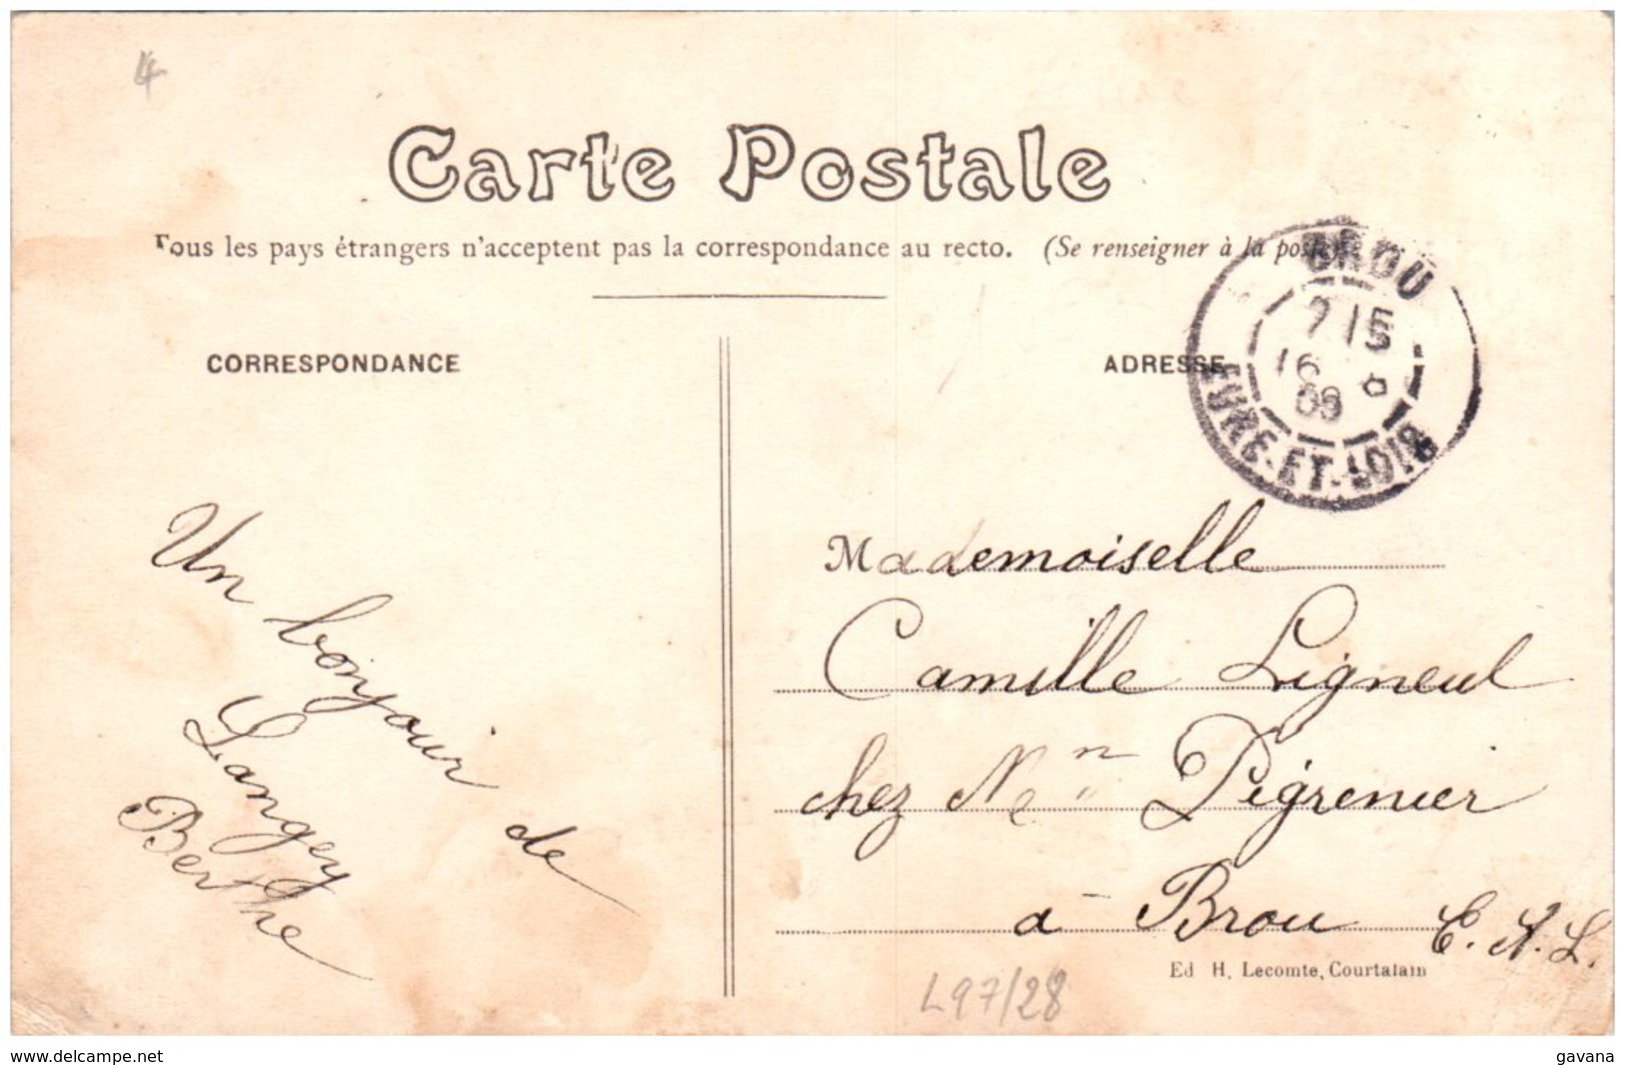 4
Carte Postale
Tous les pays étrangers n'acceptent pas la correspondance au recto. (Se renseigner à la poste)
CORRESPONDANCE
ADRESSE
BROU
7 15
16
EURE-ET-LOIR
Un bonjour de
Langey
Berthe
Mademoiselle
Camille Ligneul
chez Pégrenier
à Brou
E. A. L.
Ed H. Lecomte, Courtalain
L97/28
www.delcampe.net
gavana